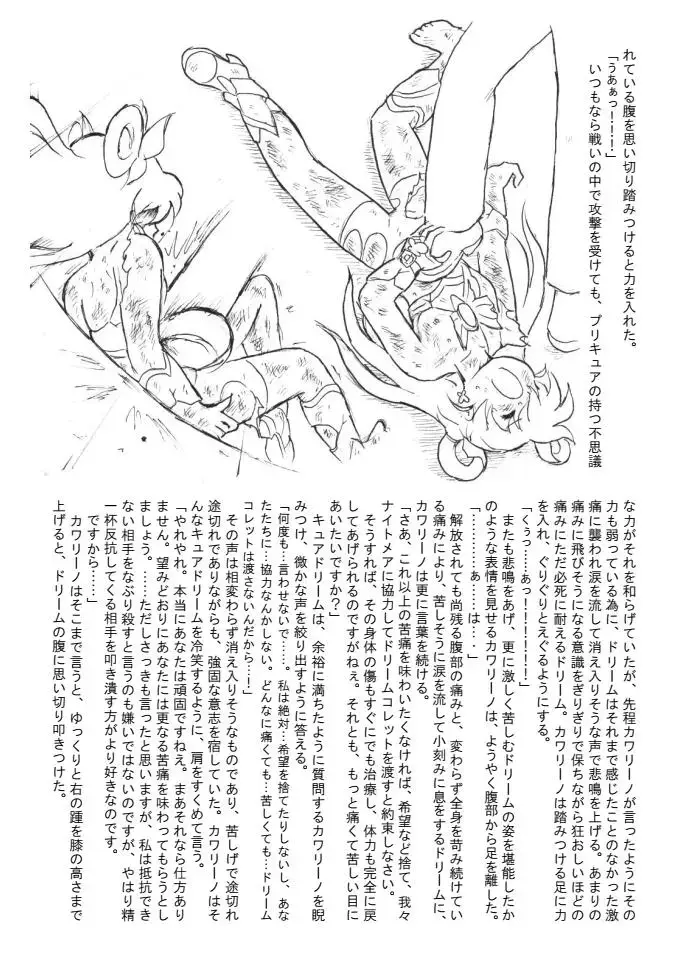 れている腹を思い切り踏みつけると力を入れた。
「うあぁっ！…！…！…」
いつもなら戦いの中で攻撃を受けても、プリキュアの持つ不思議
な力がそれを和らげていたが、先程カワリーノが言ったようにその
力も弱っている為に、ドリームはそれまで感じたことのなかった激
痛に襲われ涙を流して消え入りそうな声で悲鳴を上げる。あまりの
痛みに飛びそうになる意識をぎりぎりで保ちながら狂おしいほどの
痛みにただ必死に耐えるドリーム。カワリーノは踏みつける足に力
を入れ、ぐりぐりとえぐるようにする。
「くぅっ……あっ！！！！！！」
またも悲鳴をあげ、更に激しく苦しむドリームの姿を堪能したか
のような表情を見せるカワリーノは、ようやく腹部から足を離した。
「…………あ……は…．」
解放されても尚残る腹部の痛みと、変わらず全身を苛み続けてい
る痛みにより、苦しそうに涙を流して小刻みに息をするドリームに、
カワリーノは更に言葉を続ける。
「さあ、これ以上の苦痛を味わいたくなければ、希望など捨て、我々
ナイトメアに協力してドリームコレットを渡すと約束しなさい。
そうすれば、その身体の傷もすぐにでも治療し、体力も完全に戻
してあげられるのですがねえ。それとも、もっと痛くて苦しい目に
あいたいですか？」
キュアドリームは、余裕に満ちたように質問するカワリーノを睨
みつけ、微かな声を絞り出すように答える。
「何度も…言わせないで……。私は絶対…希望を捨てたりしないし、あな
たたちに…協力なんかしない。どんなに痛くても…苦しくても…ドリーム
コレットは渡さないんだから…！」
その声は相変わらず消え入りそうなものであり、苦しげで途切れ
途切れでありながらも、強固な意志を宿していた。カワリーノはそ
んなキュアドリームを冷笑するように、肩をすくめて言う。
「やれやれ。本当にあなたは頑固ですねえ。まあそれなら仕方あり
ません。望みどおりにあなたには更なる苦痛を味わってもらうとし
ましょう。……ただしさっきも言ったと思いますが、私は抵抗でき
ない相手をなぶり殺すと言うのも嫌いではないのですが、やはり精
一杯反抗してくる相手を叩き潰す方がより好きなのです。
ですから……」
カワリーノはそこまで言うと、ゆっくりと右の踵を膝の高さまで
上げると、ドリームの腹に思い切り叩きつけた。